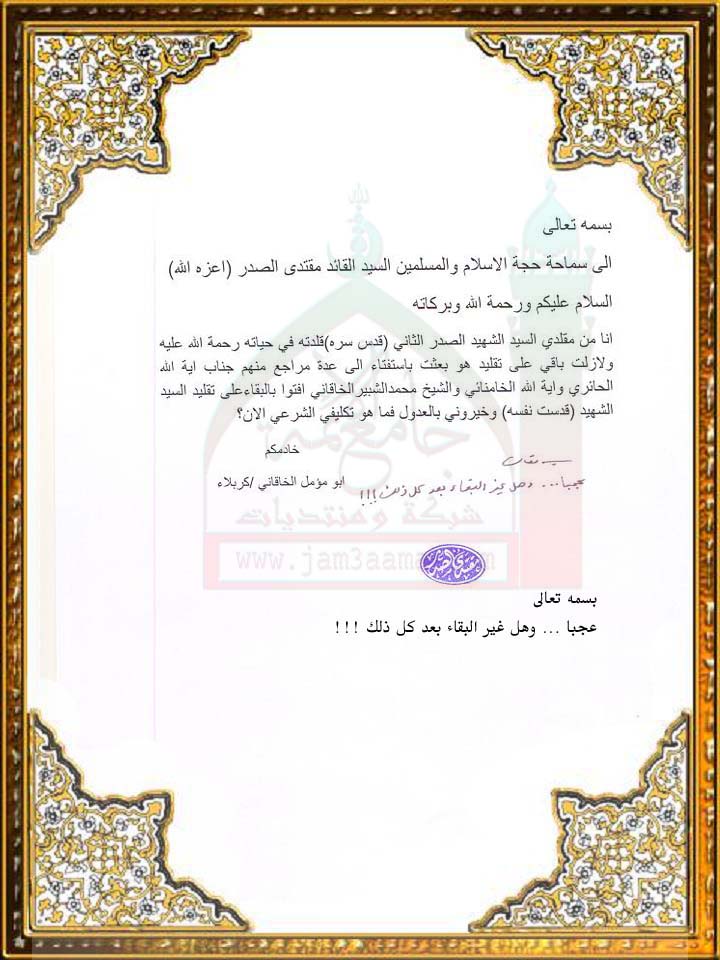 بسمه تعالى
الى سماحة حجة الاسلام والمسلمين السيد القائد مقتدى الصدر (اعزه الله)
السلام عليكم ورحمة الله وبركاته
انا من مقلدي السيد الشهيد الصدر الثاني (قدس سره)قلدته في حياته رحمة الله عليه
ولازلت باقي على تقليد هو بعثت باستفتاء الى عدة مراجع منهم جناب اية الله
الحائري واية الله الخامنائي والشيخ محمدالشبيرالخاقاني افتوا بالبقاءعلى تقليد السيد
الشهيد (قدست نفسه) وخيروني بالعدول فما هو تكليفي الشرعي الان؟
خادمكم
ابو مؤمل الخاقاني /كربلاء
بسمه تعالى
عجبا ... وهل غير البقاء بعد كل ذلك !!!
جامع الائمة
شركة ومنتديات
www.jam3aama.com
مقتدى الصدر
بسمه تعالى
عجبا ... وهل غير البقاء بعد كل ذلك !!!